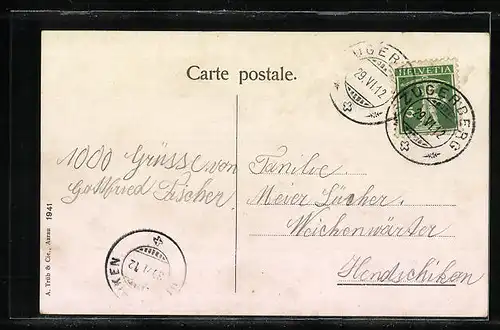 Carte postale.
HELVETIA
ZUGERBERG
29.VI.12
ZUGERBERG
VI.12
1000 Grüsse von
Gottfried Fischer.
Familie
Meier Lücher.
Weichenwärter
Hendschikon
VI 12
A. Trüb & Cie., Aarau 1941